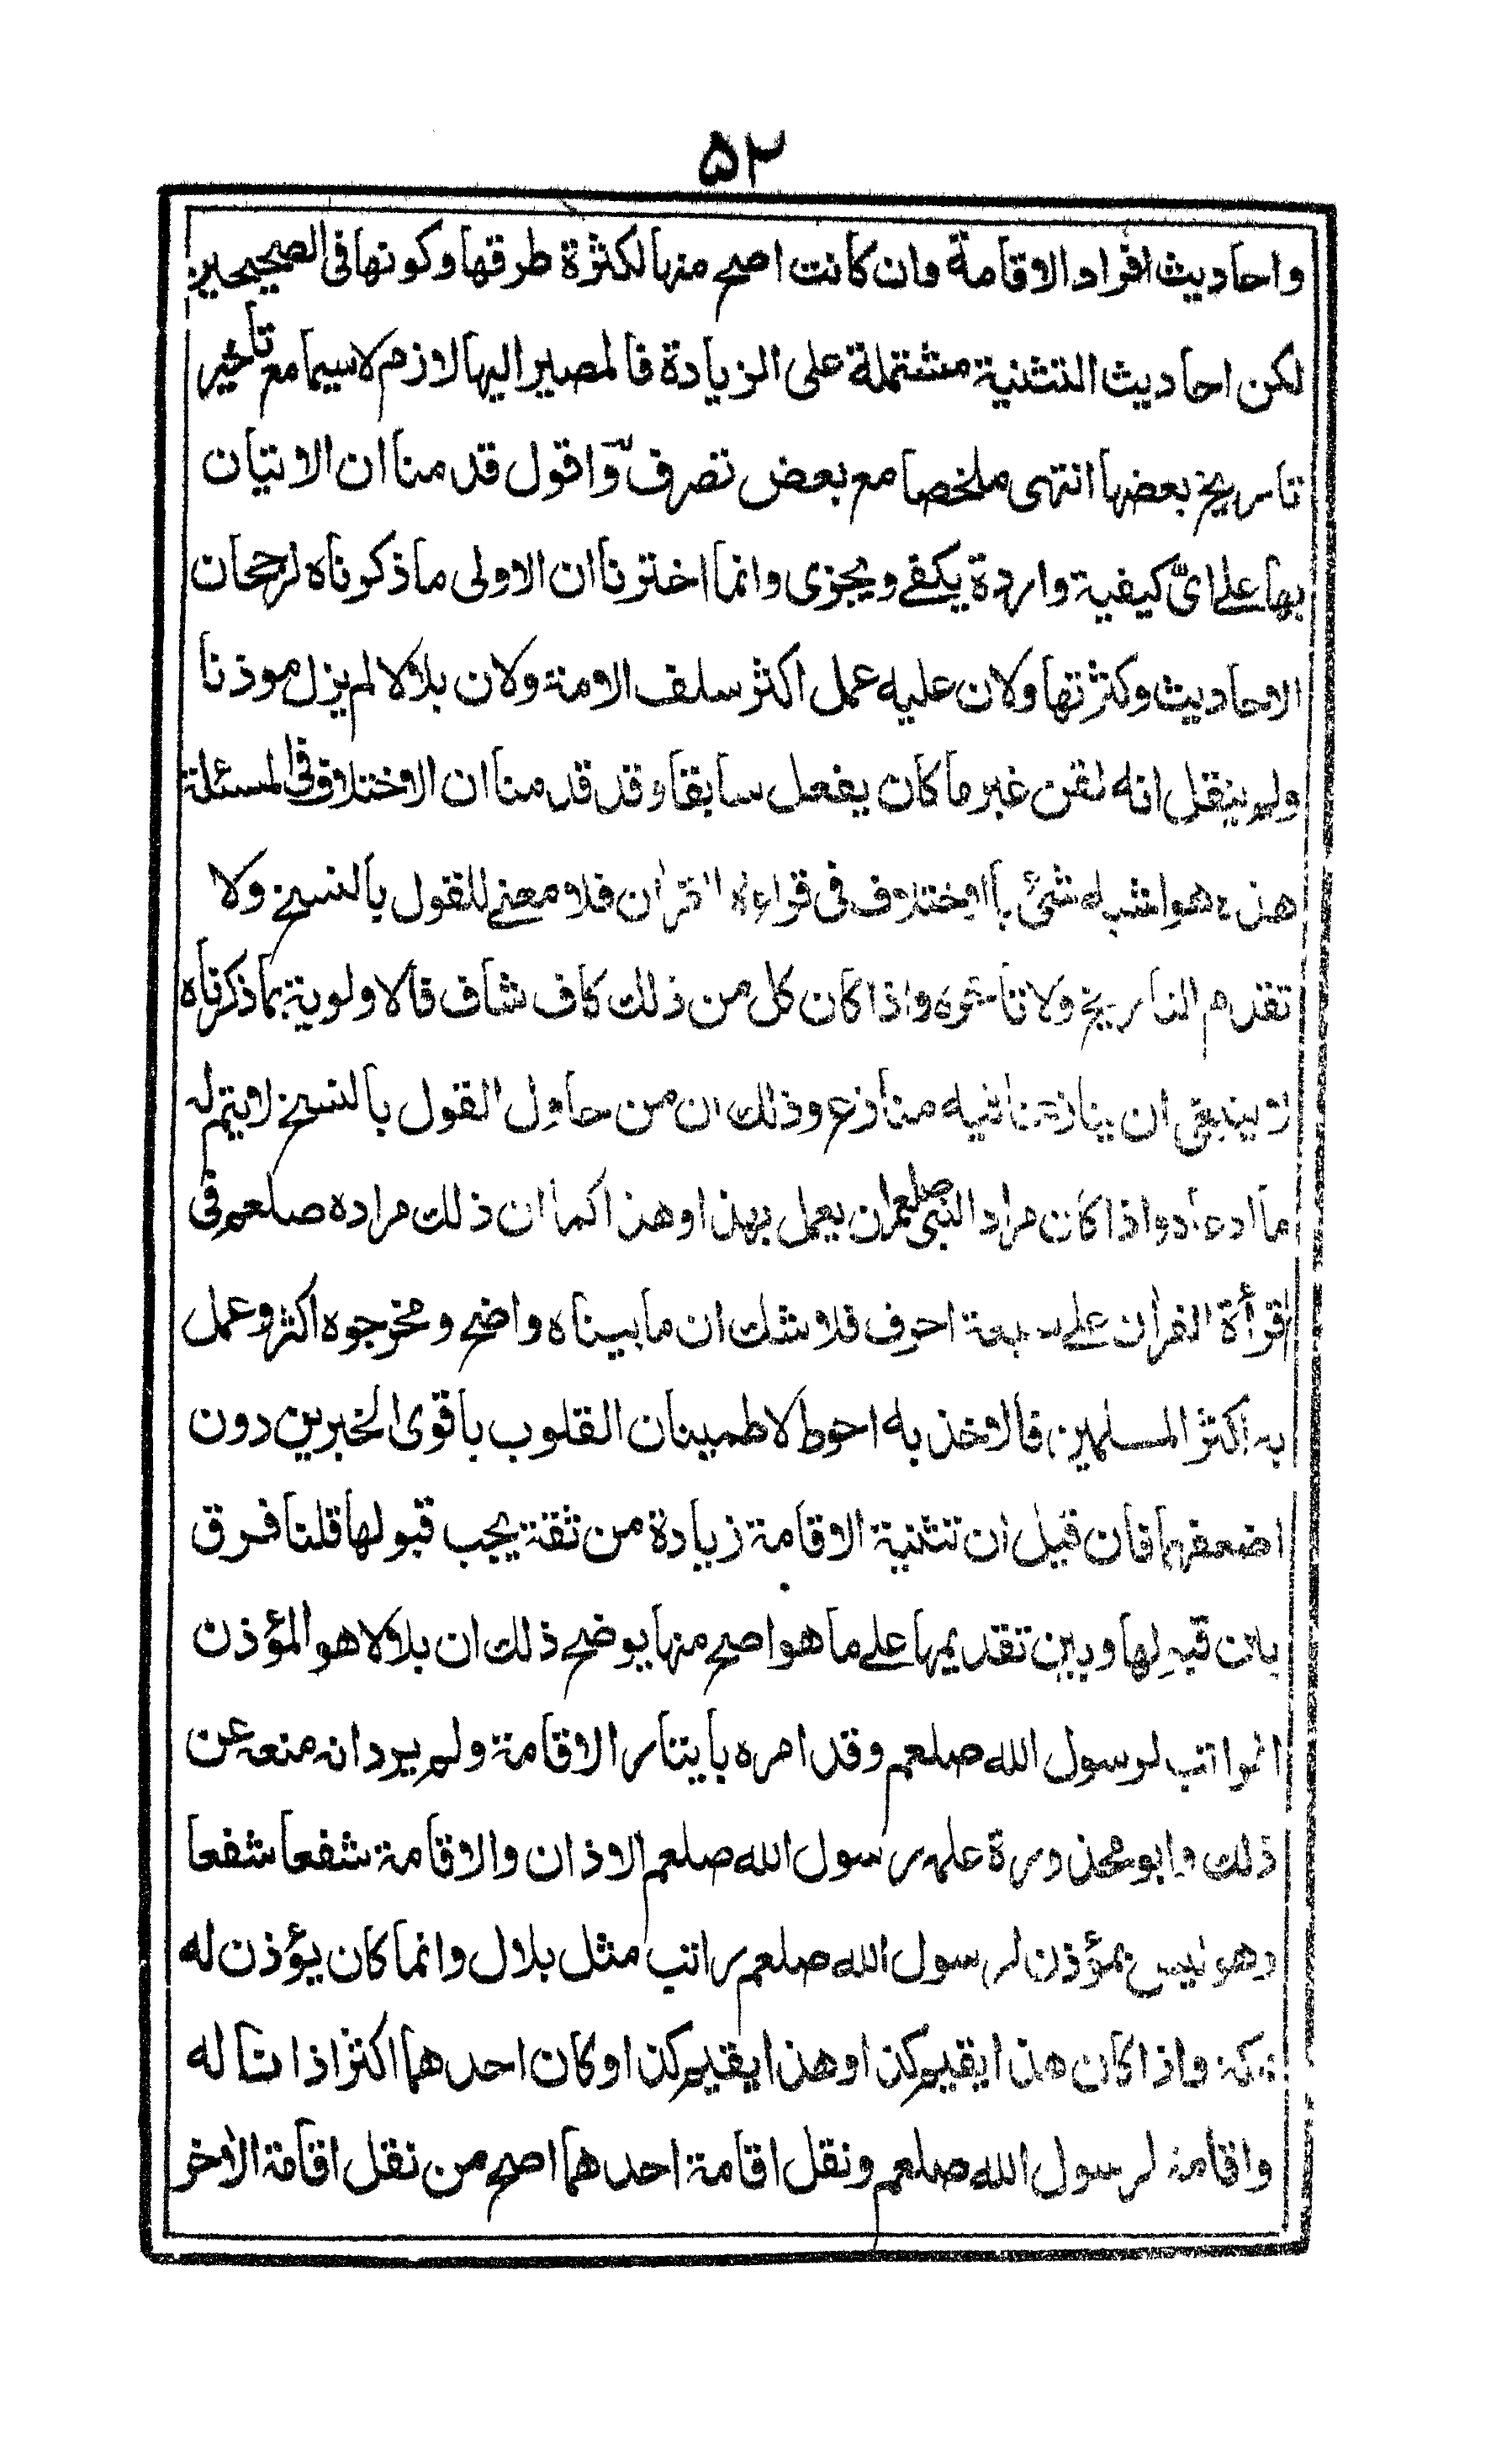 ٥٢
واحاديث افراد الاقامة وان كانت اصح منها لكثرة طرقها وكونها فى الصحيحين
لكن احاديث التثنية مشتملة على الزيادة فالمصير اليها لازم لاسيما مع تأخير
تاريخ بعضها انتهى ملخصا مع بعض تصرف واقول قدمنا ان الاتيان
بها على اىّ كيفية واردة يكفے ويجزى وانما اخترنا ان الاولى ما ذكرناه لرجحان
الاحاديث وكثرتها ولان عليه عمل اكثر سلف الامة ولان بلالا لم يزل موذنا
ولم ينقل انه لقن غير ما كان يفعل سابقا وقد قدمنا ان الاختلاف فى المسئلة
هذه هو اشبه شئ بالاختلاف فى قراءة القرآن فلا معنے للقول بالنسخ ولا
تقدم التاريخ ولا تأخره واذا كان كل من ذلك كاف شاف فالاولوية بما ذكرناه
لا ينبغى ان ينازعنا فيه منازع وذلك ان من حاول القول بالنسخ لا يتم له
ما ادعاه واذا كان مراد النبى صلعم ان يعمل بهذا وهذا كما ان ذلك مراده صلعم فى
قرأة القرأن على سبعة احرف فلا شك ان ما بيناه واضح ومخرجوه اكثر وعمل
به اكثر المسلمين فالاخذ به احوط لاطمينان القلوب باقوى الخبرين دون
اضعفهما فان قيل ان تثنية الاقامة زيادة من ثقة يجب قبولها قلنا فرق
بين قبولها وبين تقديمها على ما هو اصح منها يوضح ذلك ان بلالا هو المؤذن
الراتب لرسول الله صلعم وقد امره بايتار الاقامة ولم يرد انه منعه عن
ذلك وابو محذورة علمه رسول الله صلعم الاذان والاقامة شفعا شفعا
وهو ليس بمؤذن لرسول الله صلعم راتب مثل بلال وانما كان يؤذن له
بمكة واذا كان هذا يقيم كذا وهذا يقيم كذا وكان احدهما اكثر اذانا له
واقامة لرسول الله صلعم ونقل اقامة احدهما اصح من نقل اقامة الاخر